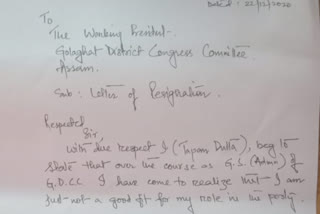 Dated : 22/12/2020
To
The Working President.
Golaghat District Congress Committee
Assam.
Sub : Letter of Resignation.
Respected
Sir,
With due respect I (Tapan Dutta), beg to
state that over the course as G.S. (Admn) of
G.D.C.C I have come to realize that I am
just not a good fit for my role in the party.